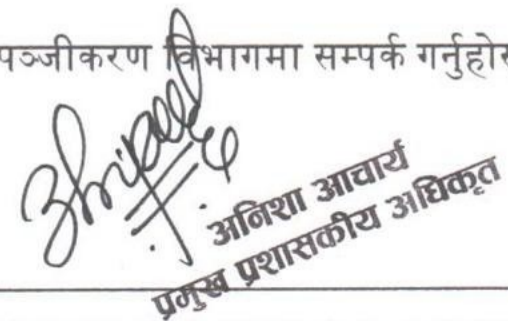 पञ्जीकरण विभागमा सम्पर्क गर्नुहोस
अनिशा आचार्य
प्रमुख प्रशासकीय अधिकृत